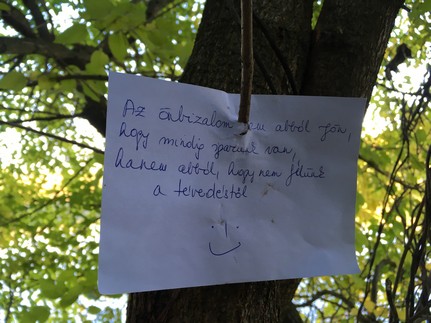 Az önbizalom nem abból jön,
hogy mindig igazunk van,
hanem abból, hogy nem félünk
a tévedéstől